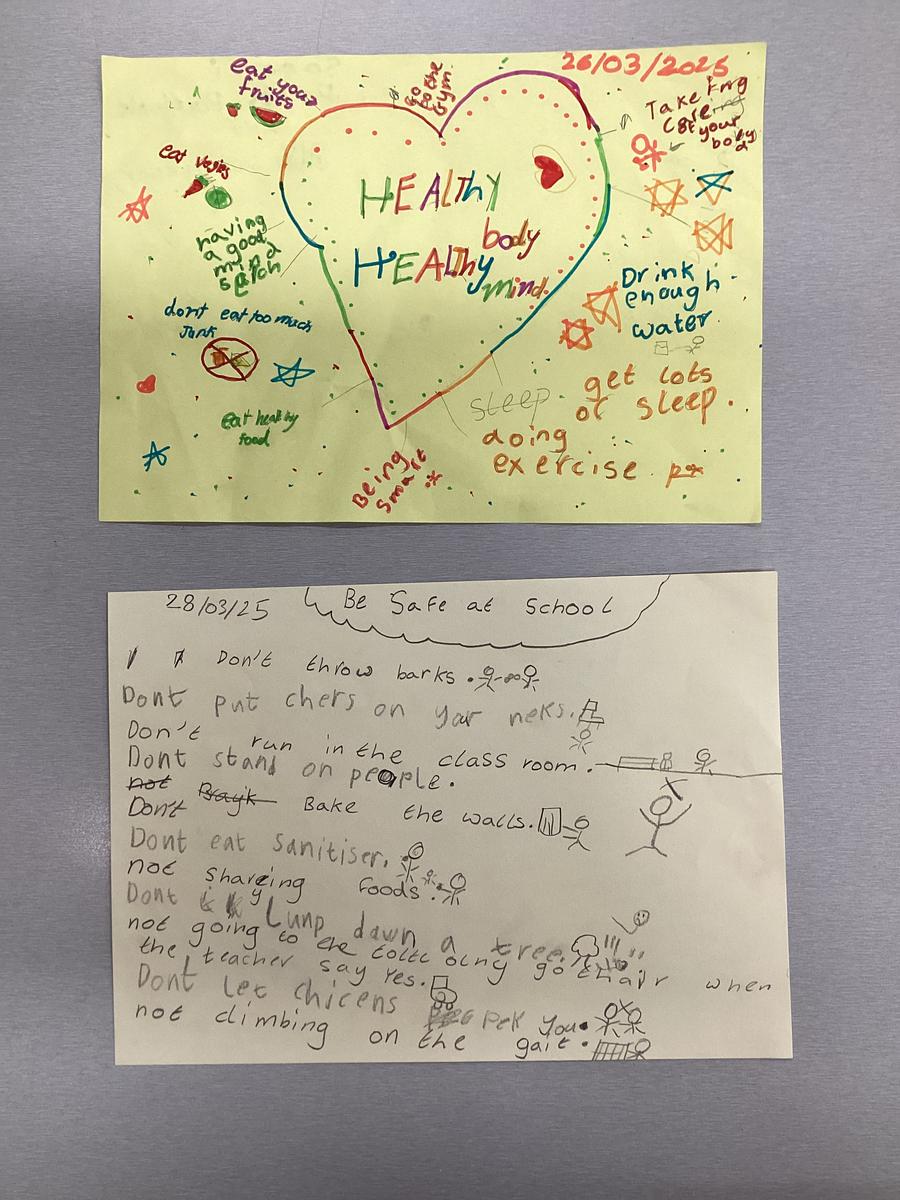 26/03/2025
eat your
fruits
go
to the
gym.
Taking
Care
of your
body
eat vegies
having
a good
mind
dont eat too much
Junk
eat healthy
food
HEALthy
body
HEALthy
mind.
Drink
enough
water
get lots
of sleep.
sleep
doing
exercise.
Being
smart
28/03/25
Be Safe at School
Don't throw barks.
Dont put chers on yar neks.
Don't run in the class room.
Dont stand on people.
not
Dont Brayk Bake the walls.
Dont eat sanitiser.
not shareing foods.
Dont Lunp dawn a tree.
not going to the toilt olny go thair when
the teacher say yes.
Dont let chicens pek you.
not climbing on the gait.